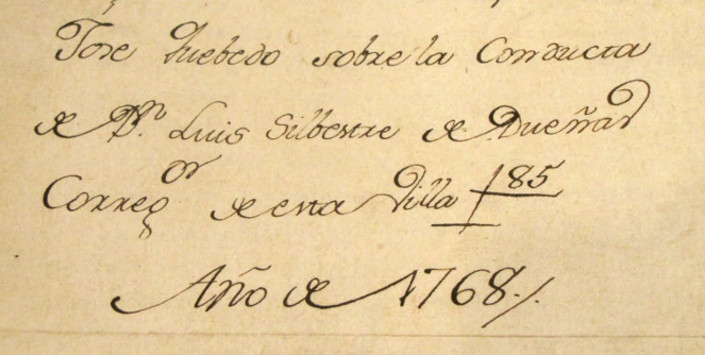 Jose Quebedo sobre la Conducta
de Dn. Luis Silbestre de Dueñas
Correg.or de esta Villa 85
Año de 1768./.